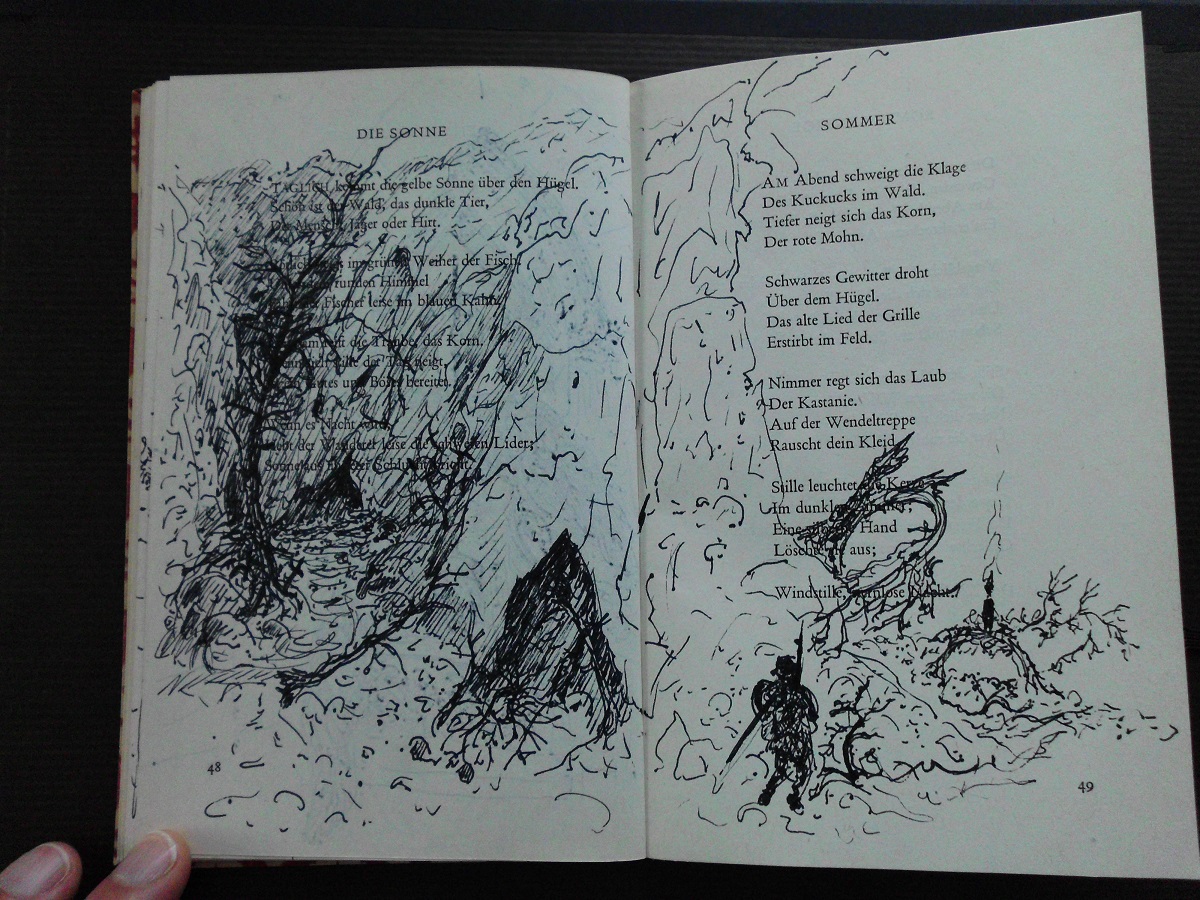 DIE SONNE
TÄGLICH kommt die gelbe Sonne über den Hügel.
Schön ist der Wald, das dunkle Tier,
Der Mensch; Jäger oder Hirt.
im grünen Weiher der Fisch.
runden Himmel
Fischer leise im blauen Kahn.
die Traube, das Korn.
stille der Tag neigt,
Gutes und Böses bereitet.
Wenn es Nacht wird,
Hebt der Wanderer leise die schweren Lider;
Sonne aus Schlucht bricht.
48
SOMMER
AM Abend schweigt die Klage
Des Kuckucks im Wald.
Tiefer neigt sich das Korn,
Der rote Mohn.
Schwarzes Gewitter droht
Über dem Hügel.
Das alte Lied der Grille
Erstirbt im Feld.
Nimmer regt sich das Laub
Der Kastanie.
Auf der Wendeltreppe
Rauscht dein Kleid.
Stille leuchtet die Kerze
Im dunklen Zimmer;
Eine Hand
Löschte sie aus;
Windstille, sternlose Nacht.
49